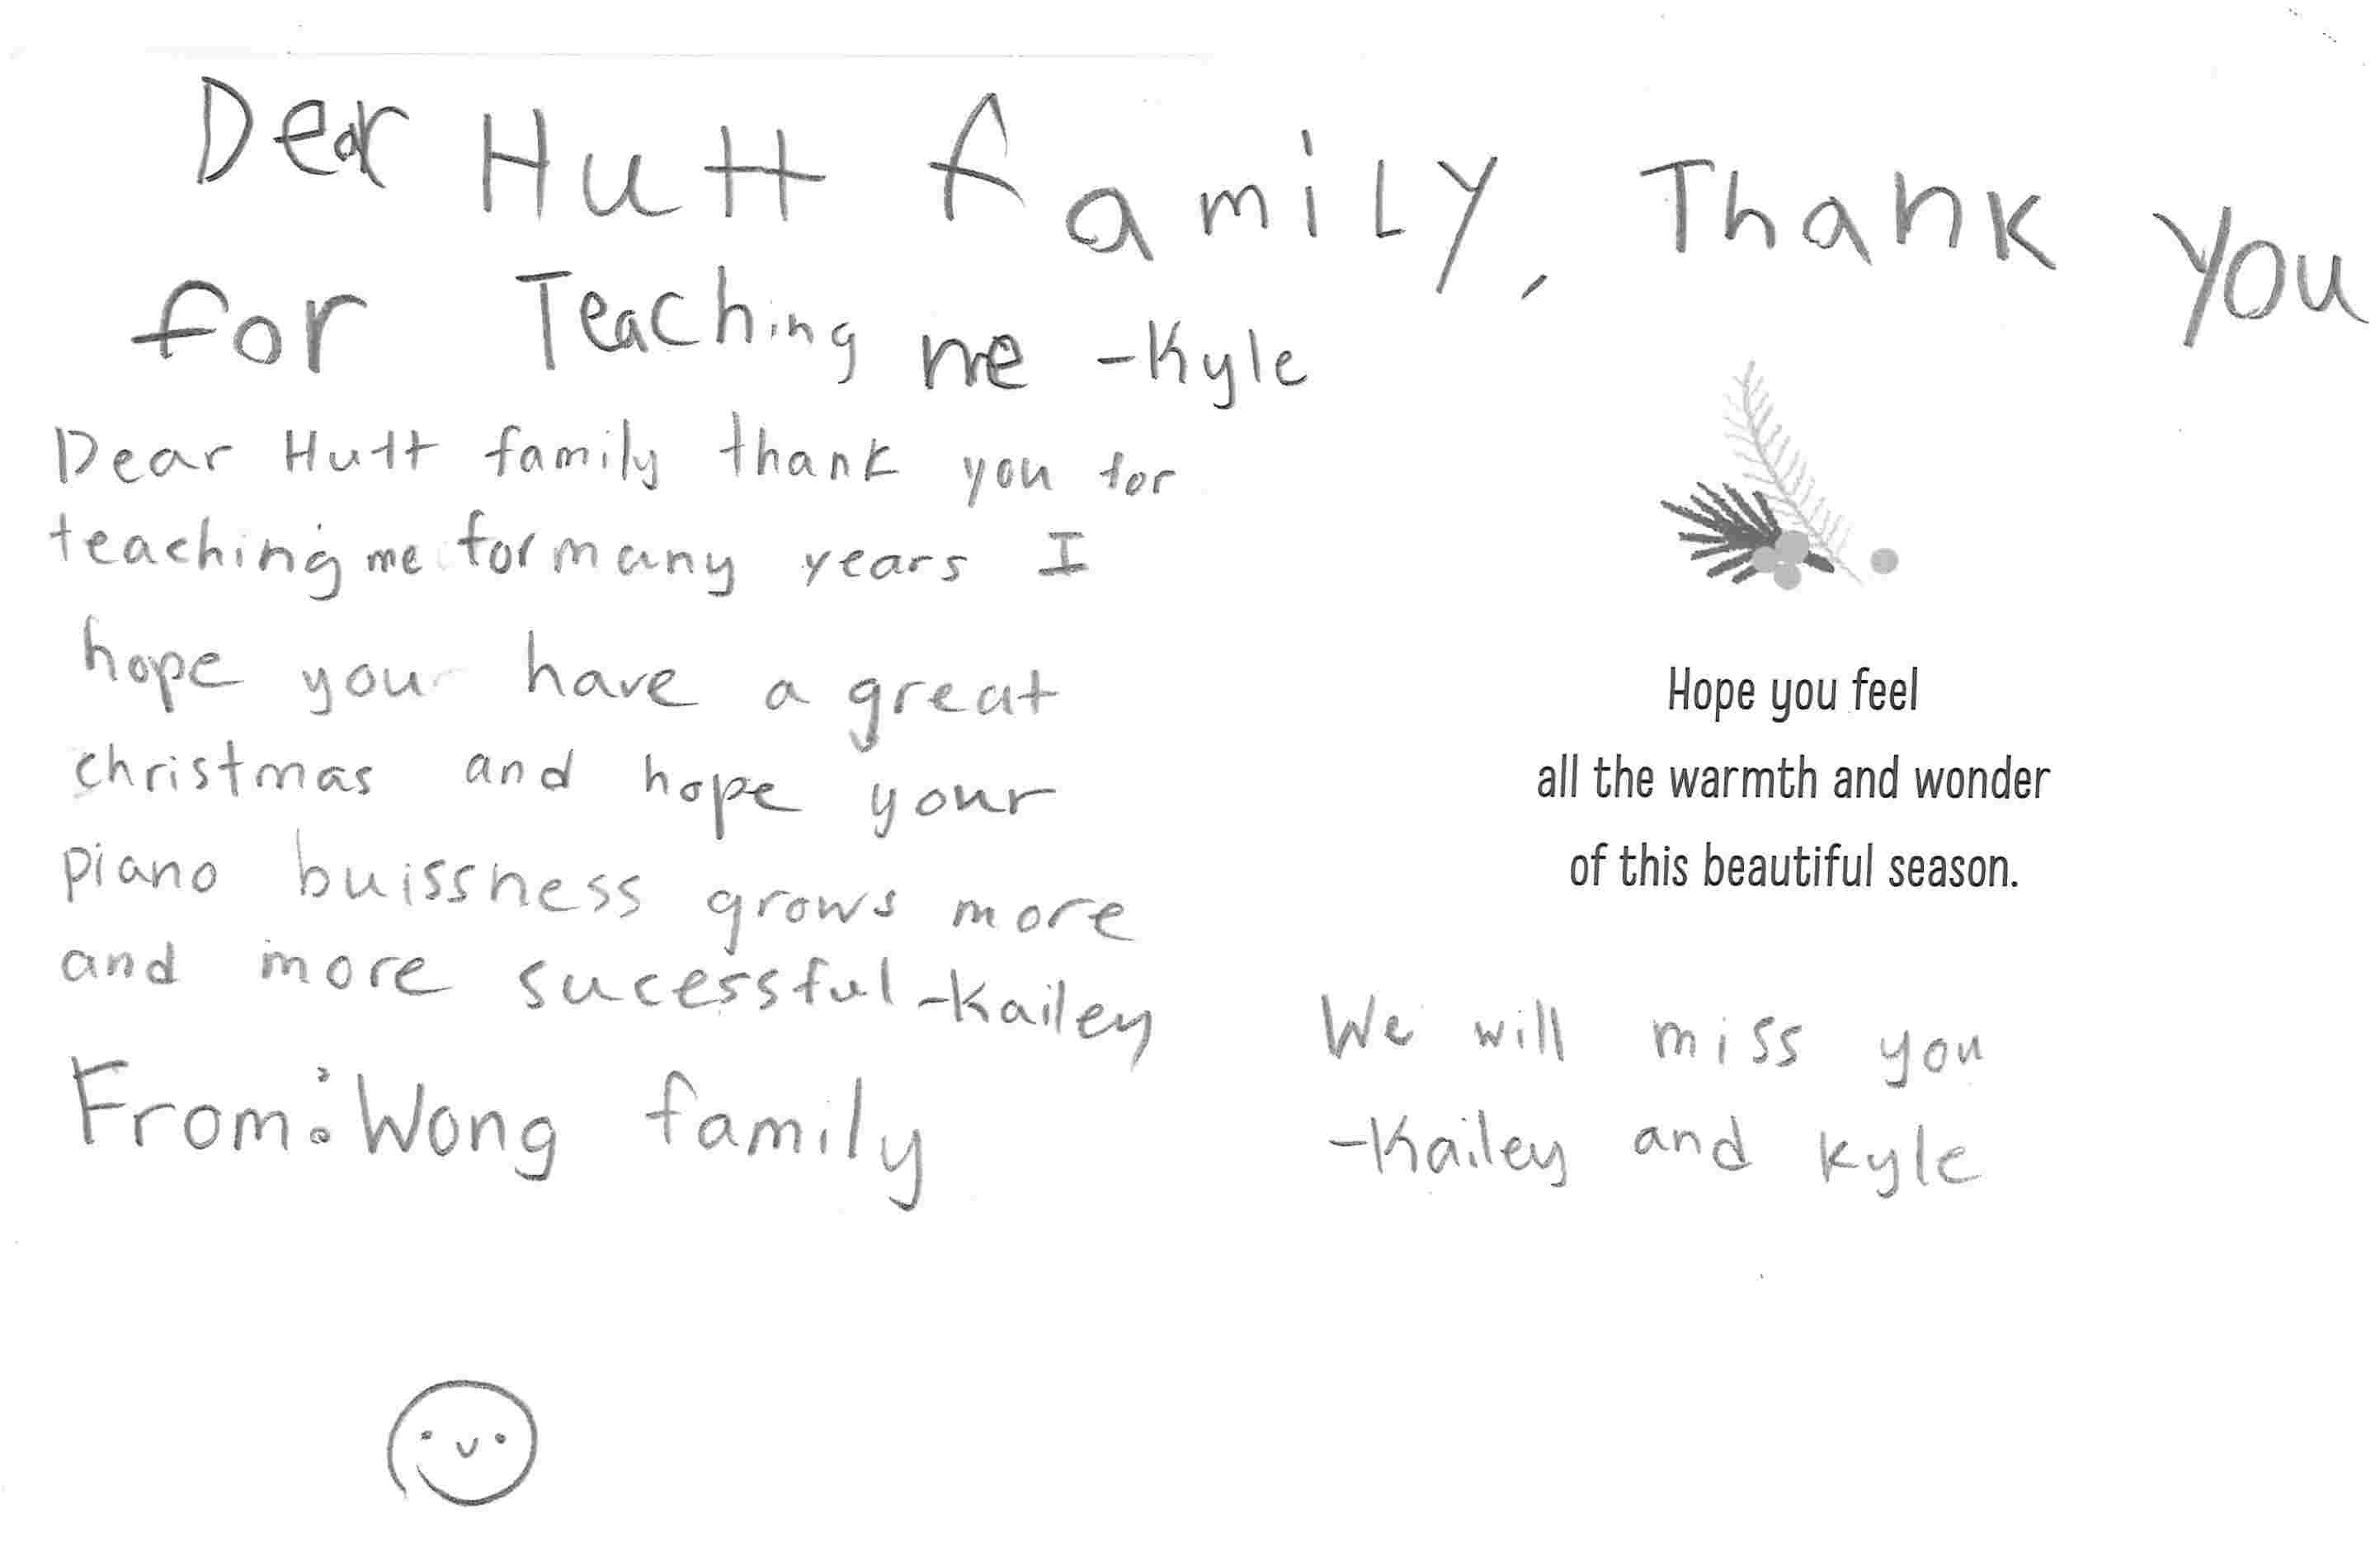 Dear Hutt family, Thank you
for Teaching me -Kyle
Dear Hutt family thank you for
teaching me for many years I
hope you have a great
christmas and hope your
piano buissness grows more
and more sucessful -Kailey
From: Wong family
Hope you feel
all the warmth and wonder
of this beautiful season.
We will miss you
-Kailey and Kyle